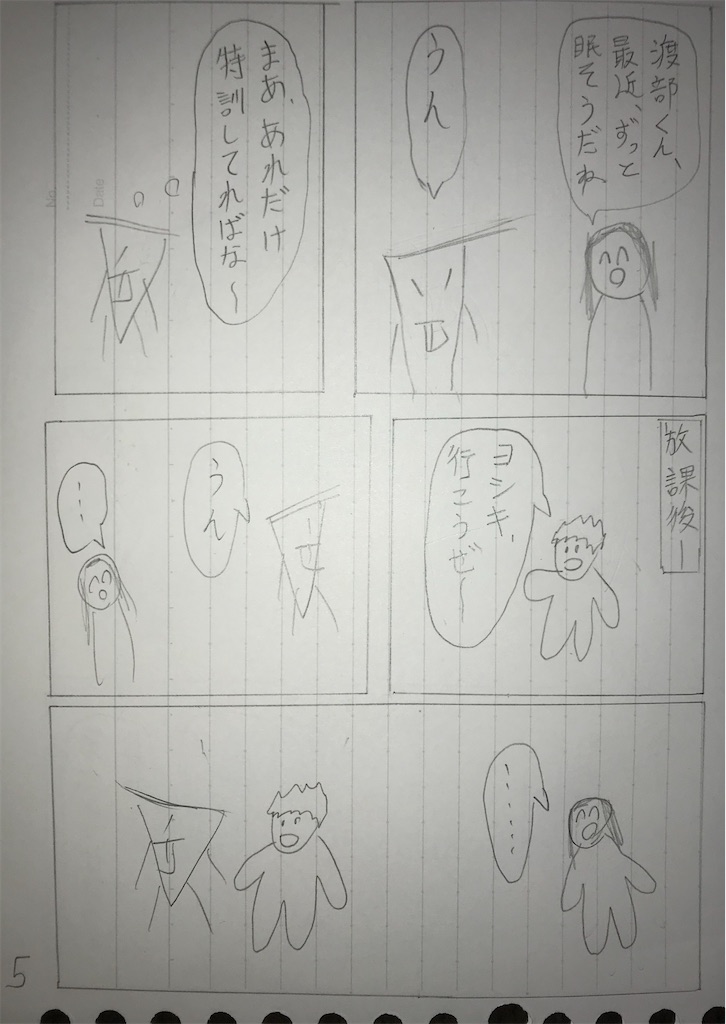 渡部くん、
最近、ずっと
眠そうだね
うん
まあ、あれだけ
特訓してればな〜
放課後ー
ヨシキ、
行こうぜ〜
うん
...
......
5
No.
Date